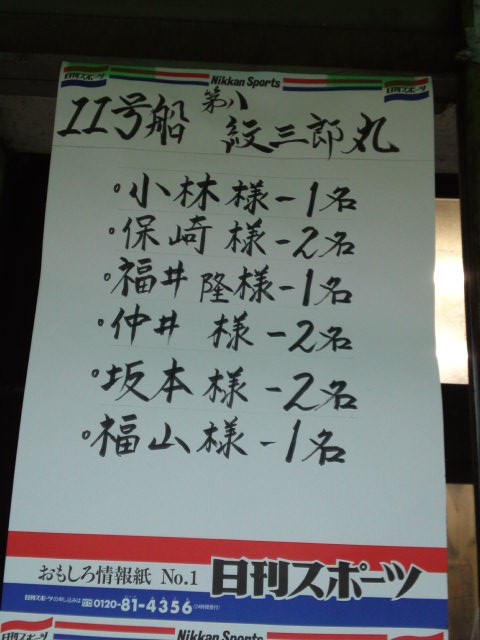 日刊スポーツ Nikkan Sports 日刊スポーツ
11号船 第八 紋三郎丸
小林様-1名
保崎様-2名
福井隆様-1名
仲井 様-2名
坂本様-2名
福山様-1名
おもしろ情報紙 No.1 日刊スポーツ
日刊スポーツの申し込みは 0120-81-4356 (24時間受付)
日刊スポーツ Nikkan Sports